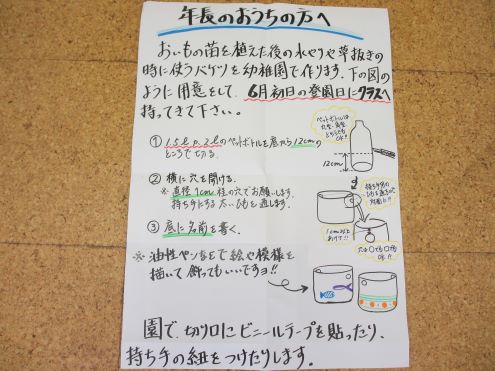 年長のおうちの方へ
おいもの苗を植えた後の水やりや草抜きの
時に使うバケツを幼稚園で作ります。下の図の
ように用意をして、6月初日の登園日にクラスへ
持ってきて下さい。
① 1.5ℓか2ℓのペットボトルを底から12cmの
ところで切る。
ペットボトルは
丸型、角型
どちらでも
OK!!
12cm
② 横に穴を開ける。
※ 直径1cm位の穴でお願いします。
持ち手にする太いひもを通します。
③ 底に名前を書く。
1cm以上
あけて!!
※ 油性ペンなどで絵や模様を
描いて飾ってもいいですヨ!!
園で、切り口にビニールテープを貼ったり、
持ち手の紐をつけたりします。